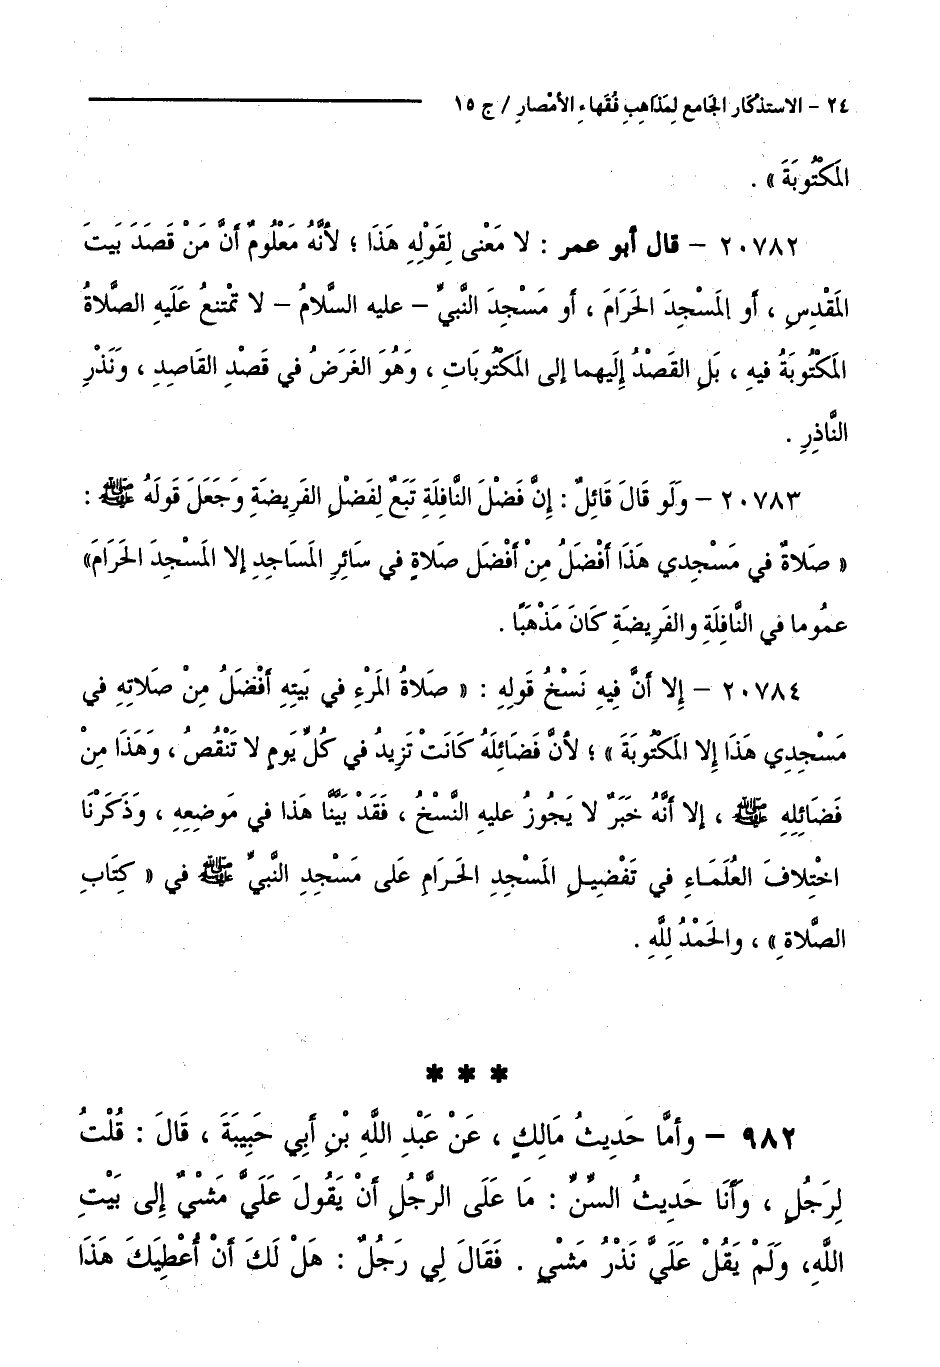 ٢٤ - الاستذكار الجامع لِمَذاهِبِ فُقَهاءِ الأمْصارِ / ج ١٥
المَكْتُوبَةَ » .
٢٠٧٨٢ - قال أبو عمر : لا مَعْنى لِقَوْلِهِ هَذَا ؛ لأنَّهُ مَعْلُومٌ أنَّ مَنْ قَصَدَ بَيتَ
المَقْدِسِ ، أو المَسْجِدَ الحَرَامَ ، أو مَسْجِدَ النَّبيِّ - عليه السلامُ - لا تمْتنعُ عَلَيهِ الصَّلاةُ
المَكْتُوبَةُ فيهِ ، بَلِ القَصْدُ إِلَيهما إلى المَكْتُوبَاتِ ، وَهُوَ الغَرَضُ في قَصْدِ القَاصِدِ ، وَنَذْرِ
النَّاذِرِ .
٢٠٧٨٣ - وَلَو قَالَ قَائِلٌ : إِنَّ فَضْلَ النَّافِلَةِ تَبَعٌ لِفَضْلِ الفَرِيضَةِ وَجَعَلَ قَولَهُ ﷺ :
« صَلاةٌ في مَسْجِدي هَذَا أفْضَلُ مِنْ أفْضَل صَلاةٍ في سَائِرِ المَساجِدِ إلا المَسْجِدَ الحَرامَ»
عمُوما في النَّافِلَةِ والفَرِيضَةِ كَانَ مَذْهَبًا .
٢٠٧٨٤ - إلا أنَّ فِيهِ نَسْخُ قَولِهِ : « صَلاةُ المَرْءِ في بَيتِهِ أفْضَلُ مِنْ صَلاتِهِ في
مَسْجِدِي هَذَا إلا المَكْتُوبَةَ » ؛ لأنَّ فَضَائِلَهُ كَانَتْ تَزِيدُ في كُلِّ يَومٍ لا تَنْقُصُ ، وَهَذَا مِنْ
فَضَائِلِهِ ﷺ ، إلا أنَّهُ خَبَرٌ لا يَجُوزُ عليهِ النَّسْخُ ، فَقَدْ بَيَّنَّا هَذا في مَوضِعِهِ ، وَذَكَرْنَا
اخْتِلافَ العُلَمَاءِ في تَفْضِيلِ المَسْجِدِ الحَرامِ عَلى مَسْجِدِ النَّبيِّ ﷺ في « كِتَابِ
الصَّلاةِ » ، والحَمْدُ لِلَّهِ .
* * *
٩٨٢ - وأمَّا حَدِيثُ مَالِكٍ ، عَنْ عَبْدِ اللَّهِ بْنِ أبِي حَبِيبَةَ ، قَالَ : قُلْتُ
لِرَجُلٍ ، وَأَنَا حَدِيثُ السِّنِّ : مَا عَلَى الرَّجُلِ أنْ يَقُولَ عَلَيَّ مَشْيٌ إلى بَيْتِ
اللَّهِ، وَلَمْ يَقُلْ عَلَيَّ نَذْرُ مَشْيٍ . فَقَالَ لِي رَجُلٌ : هَلْ لَكَ أنْ أُعْطِيَكَ هَذَا